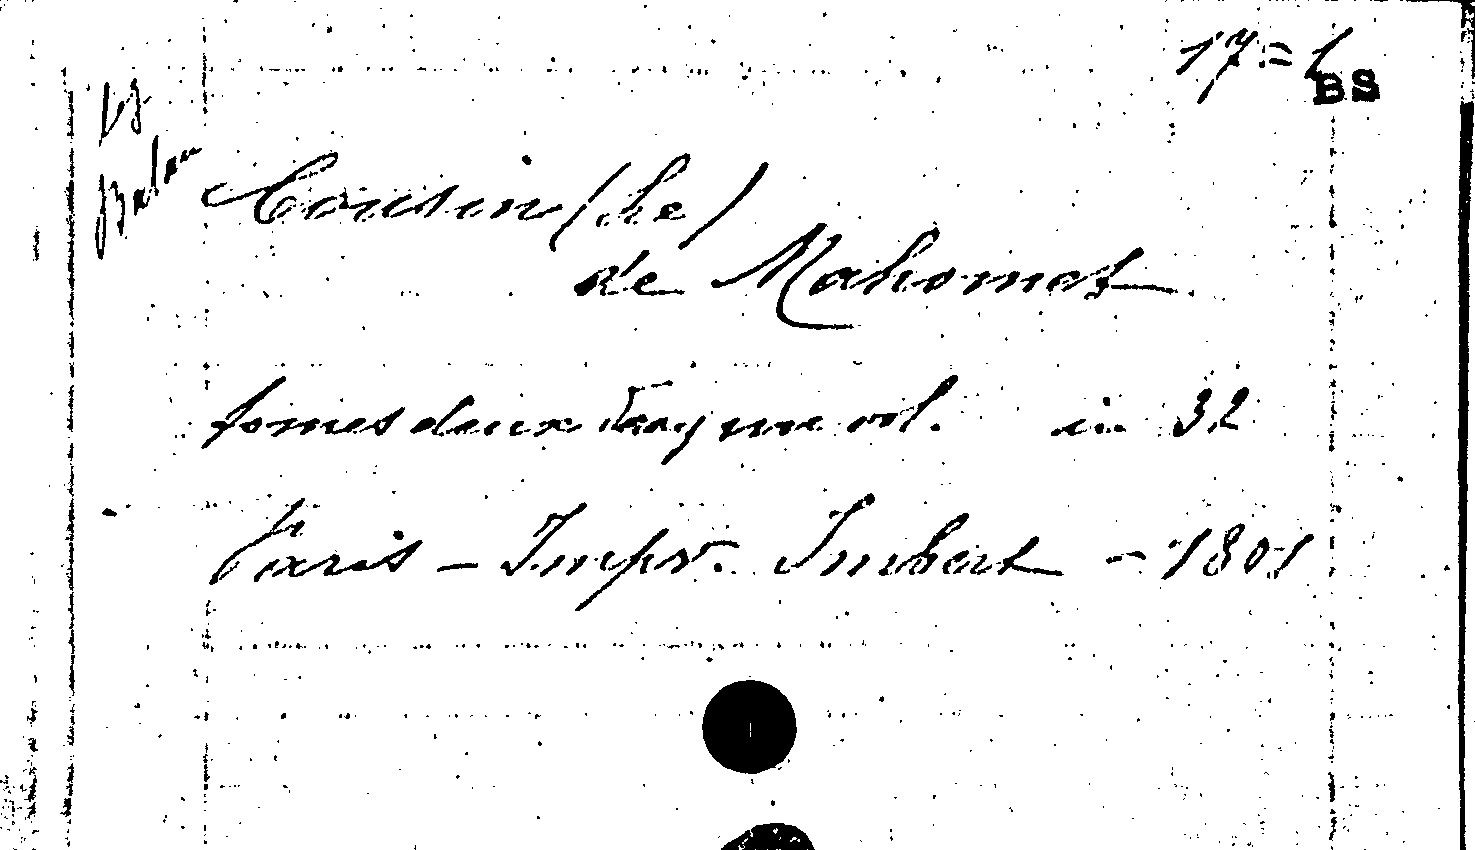 17=1
BS
Cousin (Le)
de Mahomet
tomes deux en un vol. in 32
Paris - Impr. Imbert - 1801